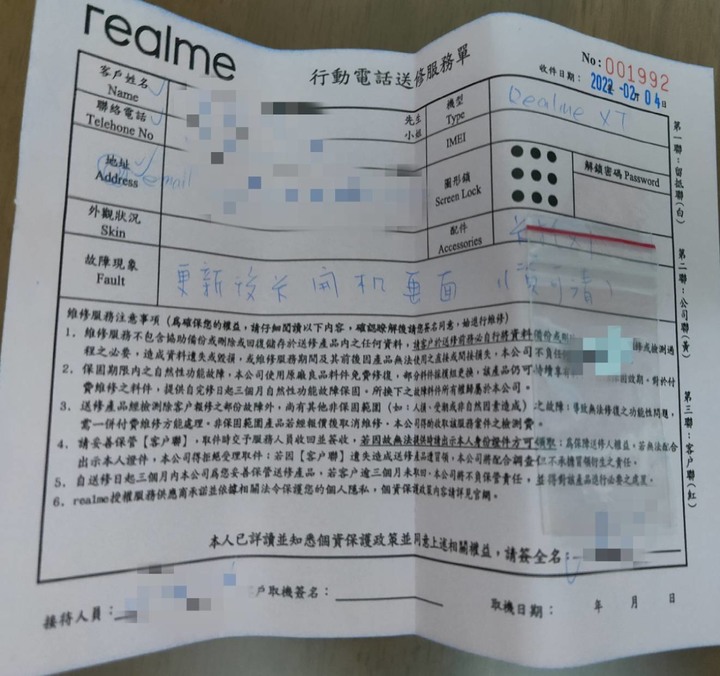 realme
行動電話送修服務單
No: 001992
收件日期: 2022 -02月 04日
客戶姓名
Name
先生
小姐
機型
Type
Realme XT
聯絡電話
Telehone No
IMEI
地址
Address
email
圖形鎖
Screen Lock
解鎖密碼 Password
外觀狀況
Skin
配件
Accessories
故障現象
Fault
更新後卡開机画面 (資可清)
維修服務注意事項 (為確保您的權益,請仔細閱讀以下內容,確認瞭解後請您簽名同意,始進行維修)
1. 維修服務不包含協助備份或刪除或回復儲存於送修產品內之任何資料,請客戶於送修前務必自行將資料備份或刪 修或檢測過
程之必要,造成資料遺失或毀損,或維修服務期間及其前後因產品無法使用之直接或間接損失,本公司不負任何
2. 保固期限內之自然性功能故障,本公司使用原廠良品料件免費修復,部分料件採模組更換,該產品仍可持續享有 固效期。對於付
費維修之料件,提供自完修日起三個月自然性功能故障保固。所換下之故障料件所有權歸屬於本公司。
3. 送修產品經檢測除客戶報修之部份故障外,尚有其他非保固範圍(如:人損、受潮或非自然因素造成)之故障:導致無法修復之功能性問題,
需一併付費維修方能處理。非保固範圍產品若經報價後取消維修,本公司得酌收取該服務案件之檢測費。
4. 請妥善保管【客戶聯】,取件時交予服務人員收回並簽收,若因故無法提供時請出示本人身份證件方可領取:為保障送修人權益,若無法配合
出示本人證件,本公司得拒絕受理取件:若因【客戶聯】遺失造成送修產品遭冒領,本公司將配合調查但不承擔冒領衍生之責任。
5. 自送修日起三個月內本公司為您妥善保管送修產品,若客戶逾三個月未取回,本公司將不負保管責任,並得對該產品進行必要之處置。
6. realme授權服務供應商承諾並依據相關法令保護您的個人隱私,個資保護政策內容請詳見官網。
本人已詳讀並知悉個資保護政策並同意上述相關權益,請簽全名:
接待人員:
客戶取機簽名:
取機日期: 年 月 日
第一聯:留抵聯(白)
第二聯:公司聯(黃)
第三聯:客戶聯(紅)